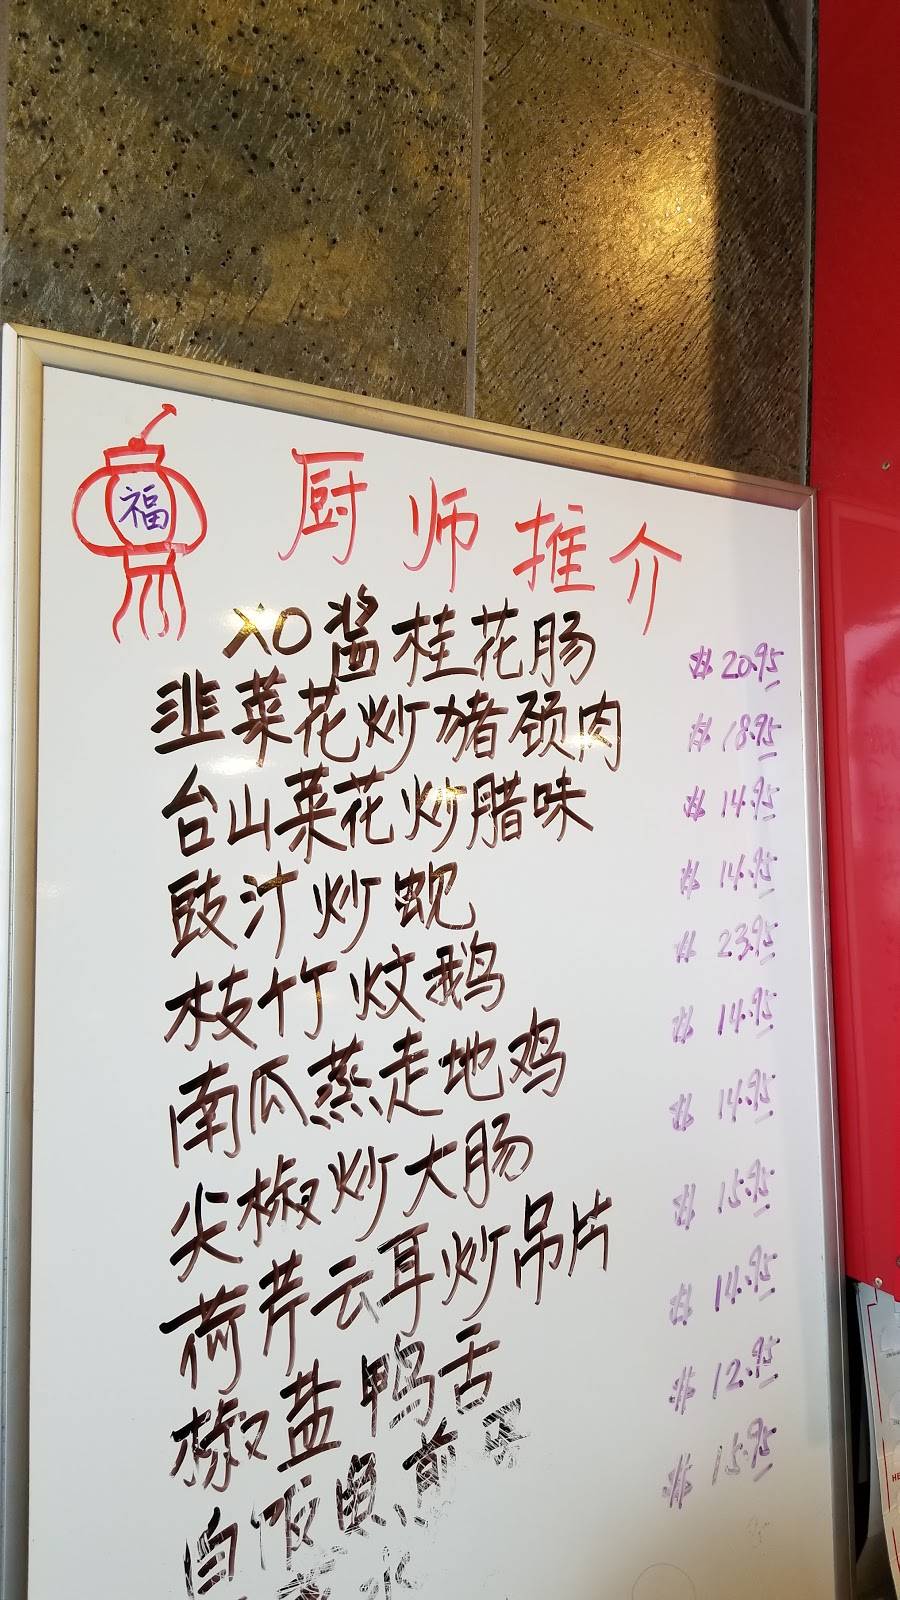 福
厨师推介
XO酱桂花肠 $20.95
韭菜花炒猪颈肉 $18.95
台山菜花炒腊味 $14.95
豉汁炒蚬 $14.95
枝竹炆鹅 $23.95
南瓜蒸走地鸡 $14.95
尖椒炒大肠 $14.95
荷芹云耳炒吊片 $15.95
椒盐鸭舌 $14.95
白饭鱼煎 $12.95
水 $15.95